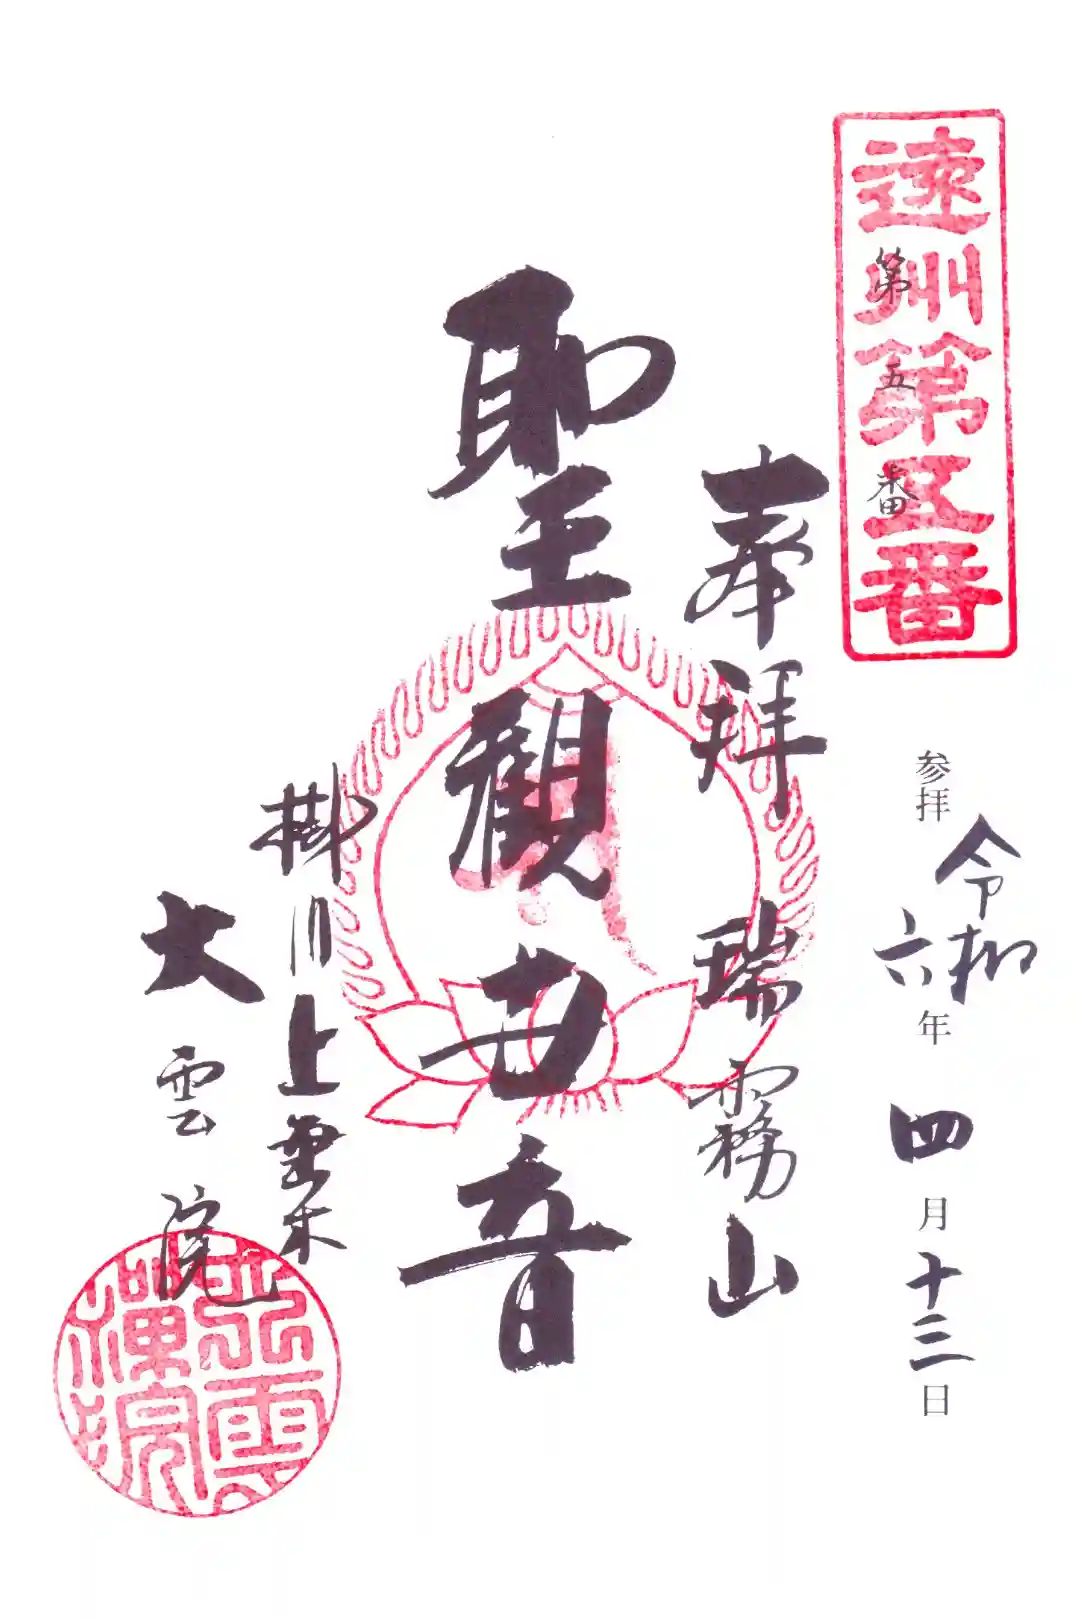 遠州第五番
第五番
参拝 令和六年四月十三日
奉拝 瑞霧山
聖観世音
掛川上垂木
大雲院
大雲禅院